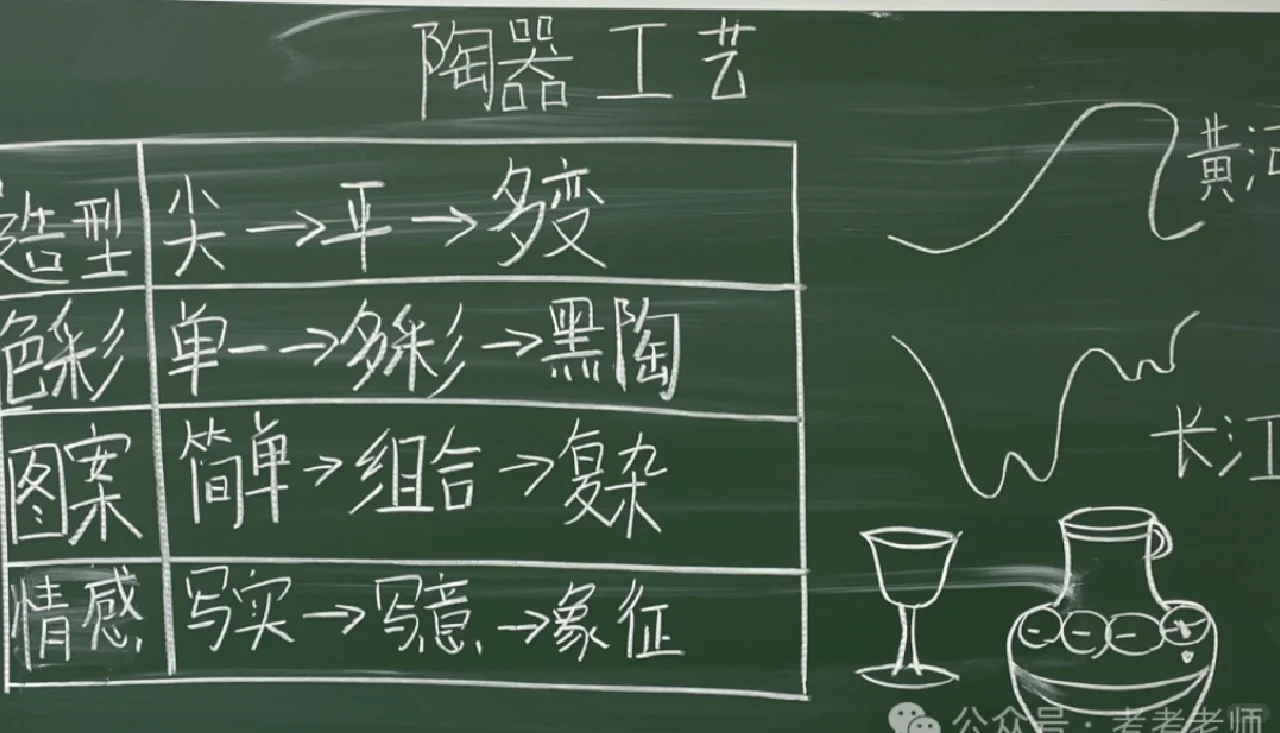 陶器工艺
造型 尖→平→多变
色彩 单一→多彩→黑陶
图案 简单→组合→复杂
情感 写实→写意→象征
黄河
长江
公众号·考考老师